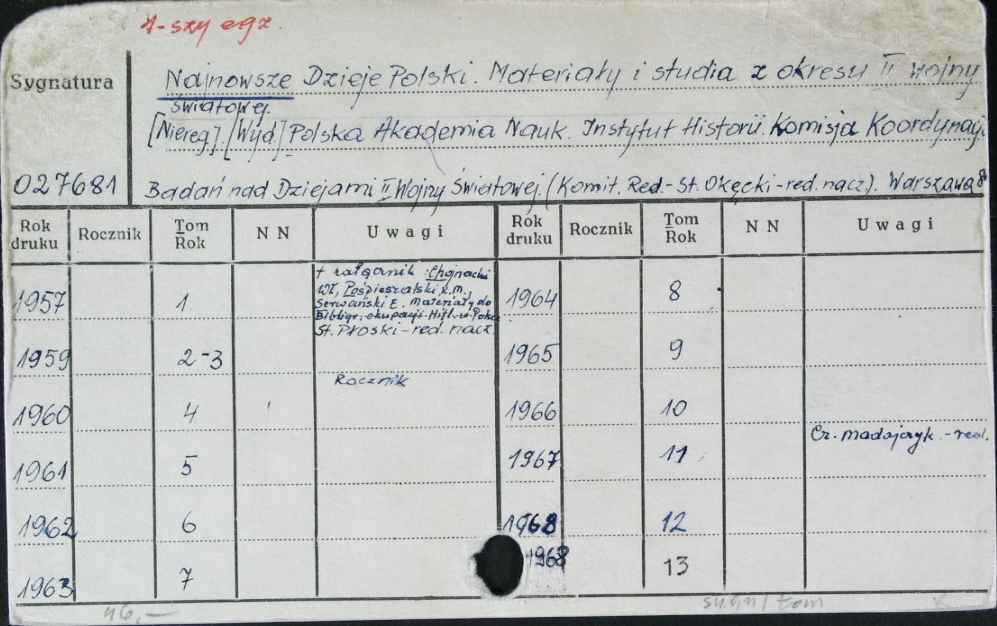 1-szy egz.
Sygnatura
Najnowsze Dzieje Polski. Materiały i studia z okresu II wojny
światowej.
[Niereg]. [Wyd.] Polska Akademia Nauk. Instytut Historii. Komisja Koordynacji
027681 Badań nad Dziejami II Wojny Światowej. (Komit. Red. - St. Okęcki - red. nacz). Warszawa 8°
Rok druku Rocznik Tom Rok N N Uwagi Rok druku Rocznik Tom Rok N N Uwagi
+ załącznik: Chojnacki
Wł., Pospieszalski K.M.,
Serwański E. Materiały do
Bibliogr. okupacji Hitl. w Polsce
St. Płoski - red. nacz.
1957 1 1964 8
1959 2-3 1965 9
Rocznik
1960 4 1966 10
Cz. Madajczyk - red.
1961 5 1967 11
1962 6 1968 12
1963 7 1968 13
46,- sygn/tom